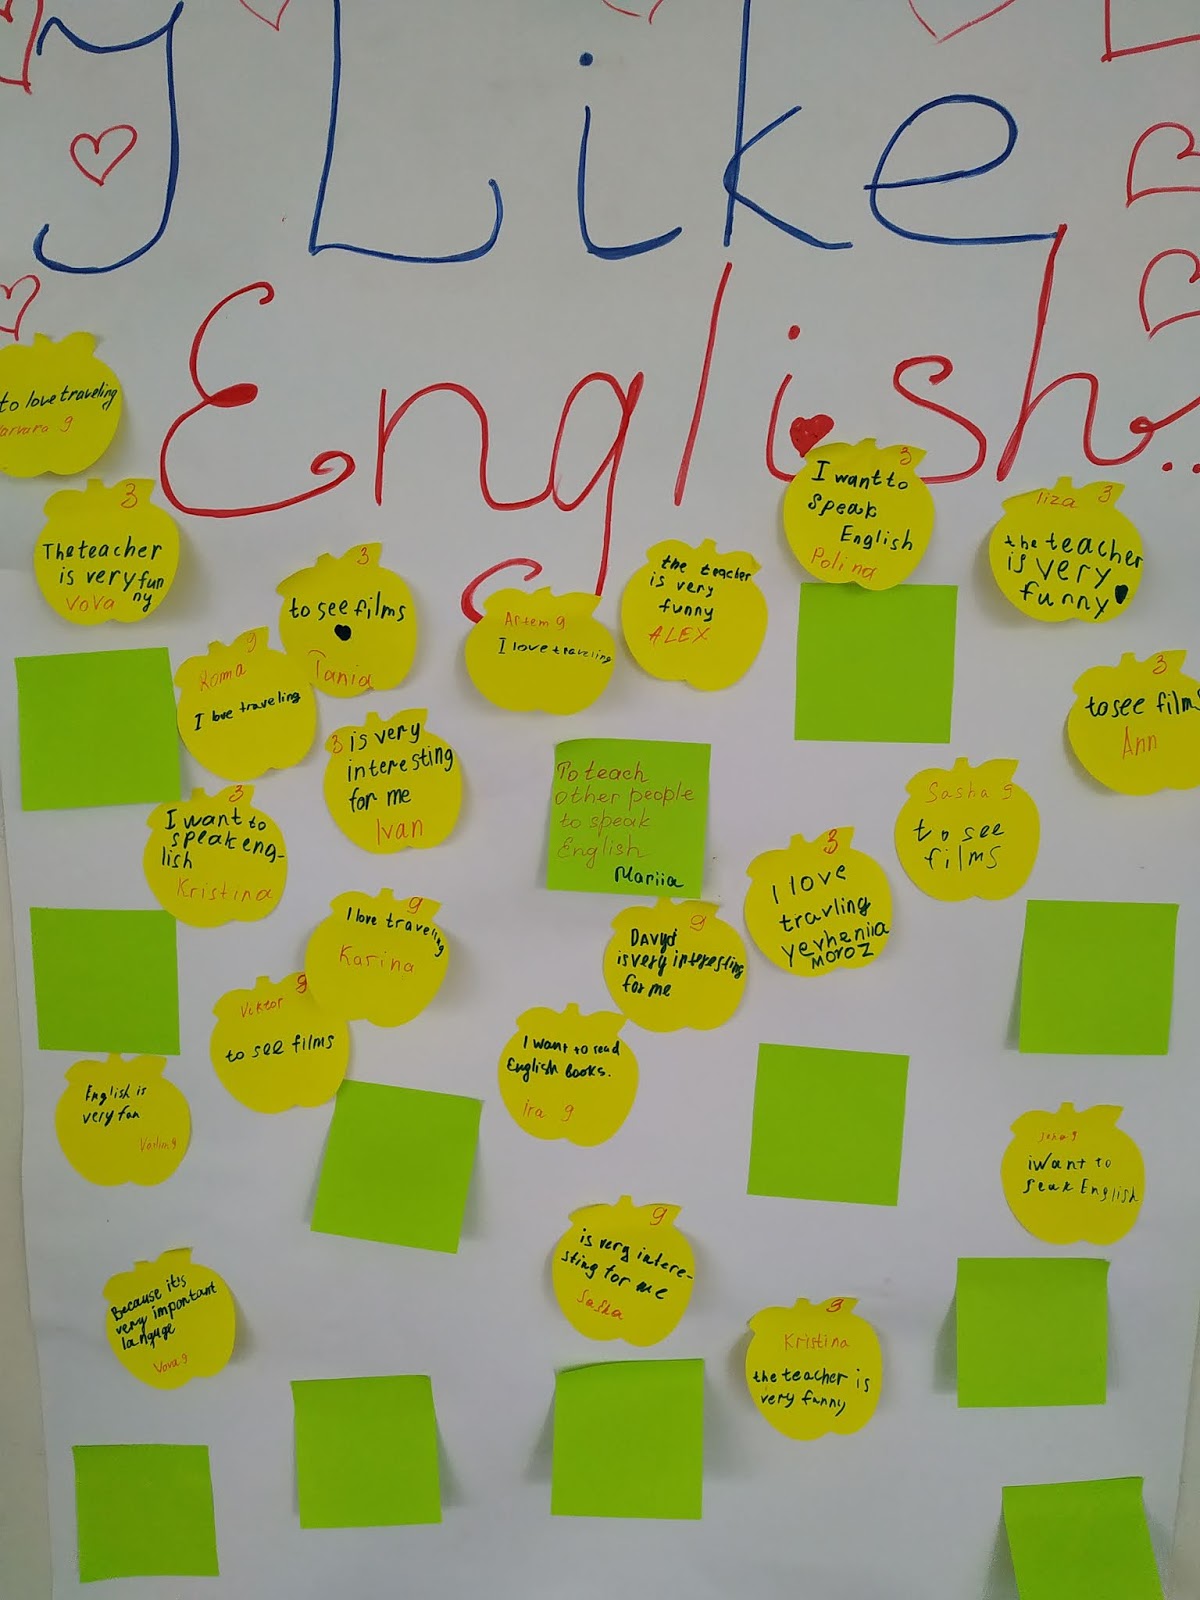 I Like
English...
to love traveling
arvara 9
3
The teacher
is very fun
ny
VoVa
3
to see films
Tania
Artem 9
I love traveling
the teacher
is very
funny
ALEX
3
I want to
speak
English
Polina
liza 3
the teacher
is very
funny
9
Roma
I love traveling
3 is very
interesting
for me
Ivan
3
to see films
Ann
To teach
other people
to speak
English
Mariia
Sasha 9
to see
films
3
I want to
speak eng-
lish
Kristina
3
I love
travling
yevheniia
MOROZ
9
I love traveling
Karina
9
DAvyd
is very interesting
for me
9
Viktor
to see films
I want to read
English books.
ira 9
English is
very fan
Vadim 9
9
iWant to
seak English
9
is very intere-
sting for me
Sasha
Because it's
very important
languge
Vova 9
3
Kristina
the teacher is
very funny